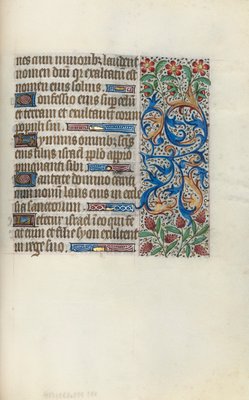 nes cum iuniorib; laudent
nomen dni qr exaltatū est
nomen eius solius.
Confessio eius super celū
et terram et exaltauit cornu
populi sui.
Hymnus omnib; scis
eius filiis israel pplo appro
pinquanti sibi.
Cantate domino canti
cum nouū laus eius in eccl
sia sanctorum.
Letetur israel in eo qui fe
cit eum et filie syon exultent
in rege suo.